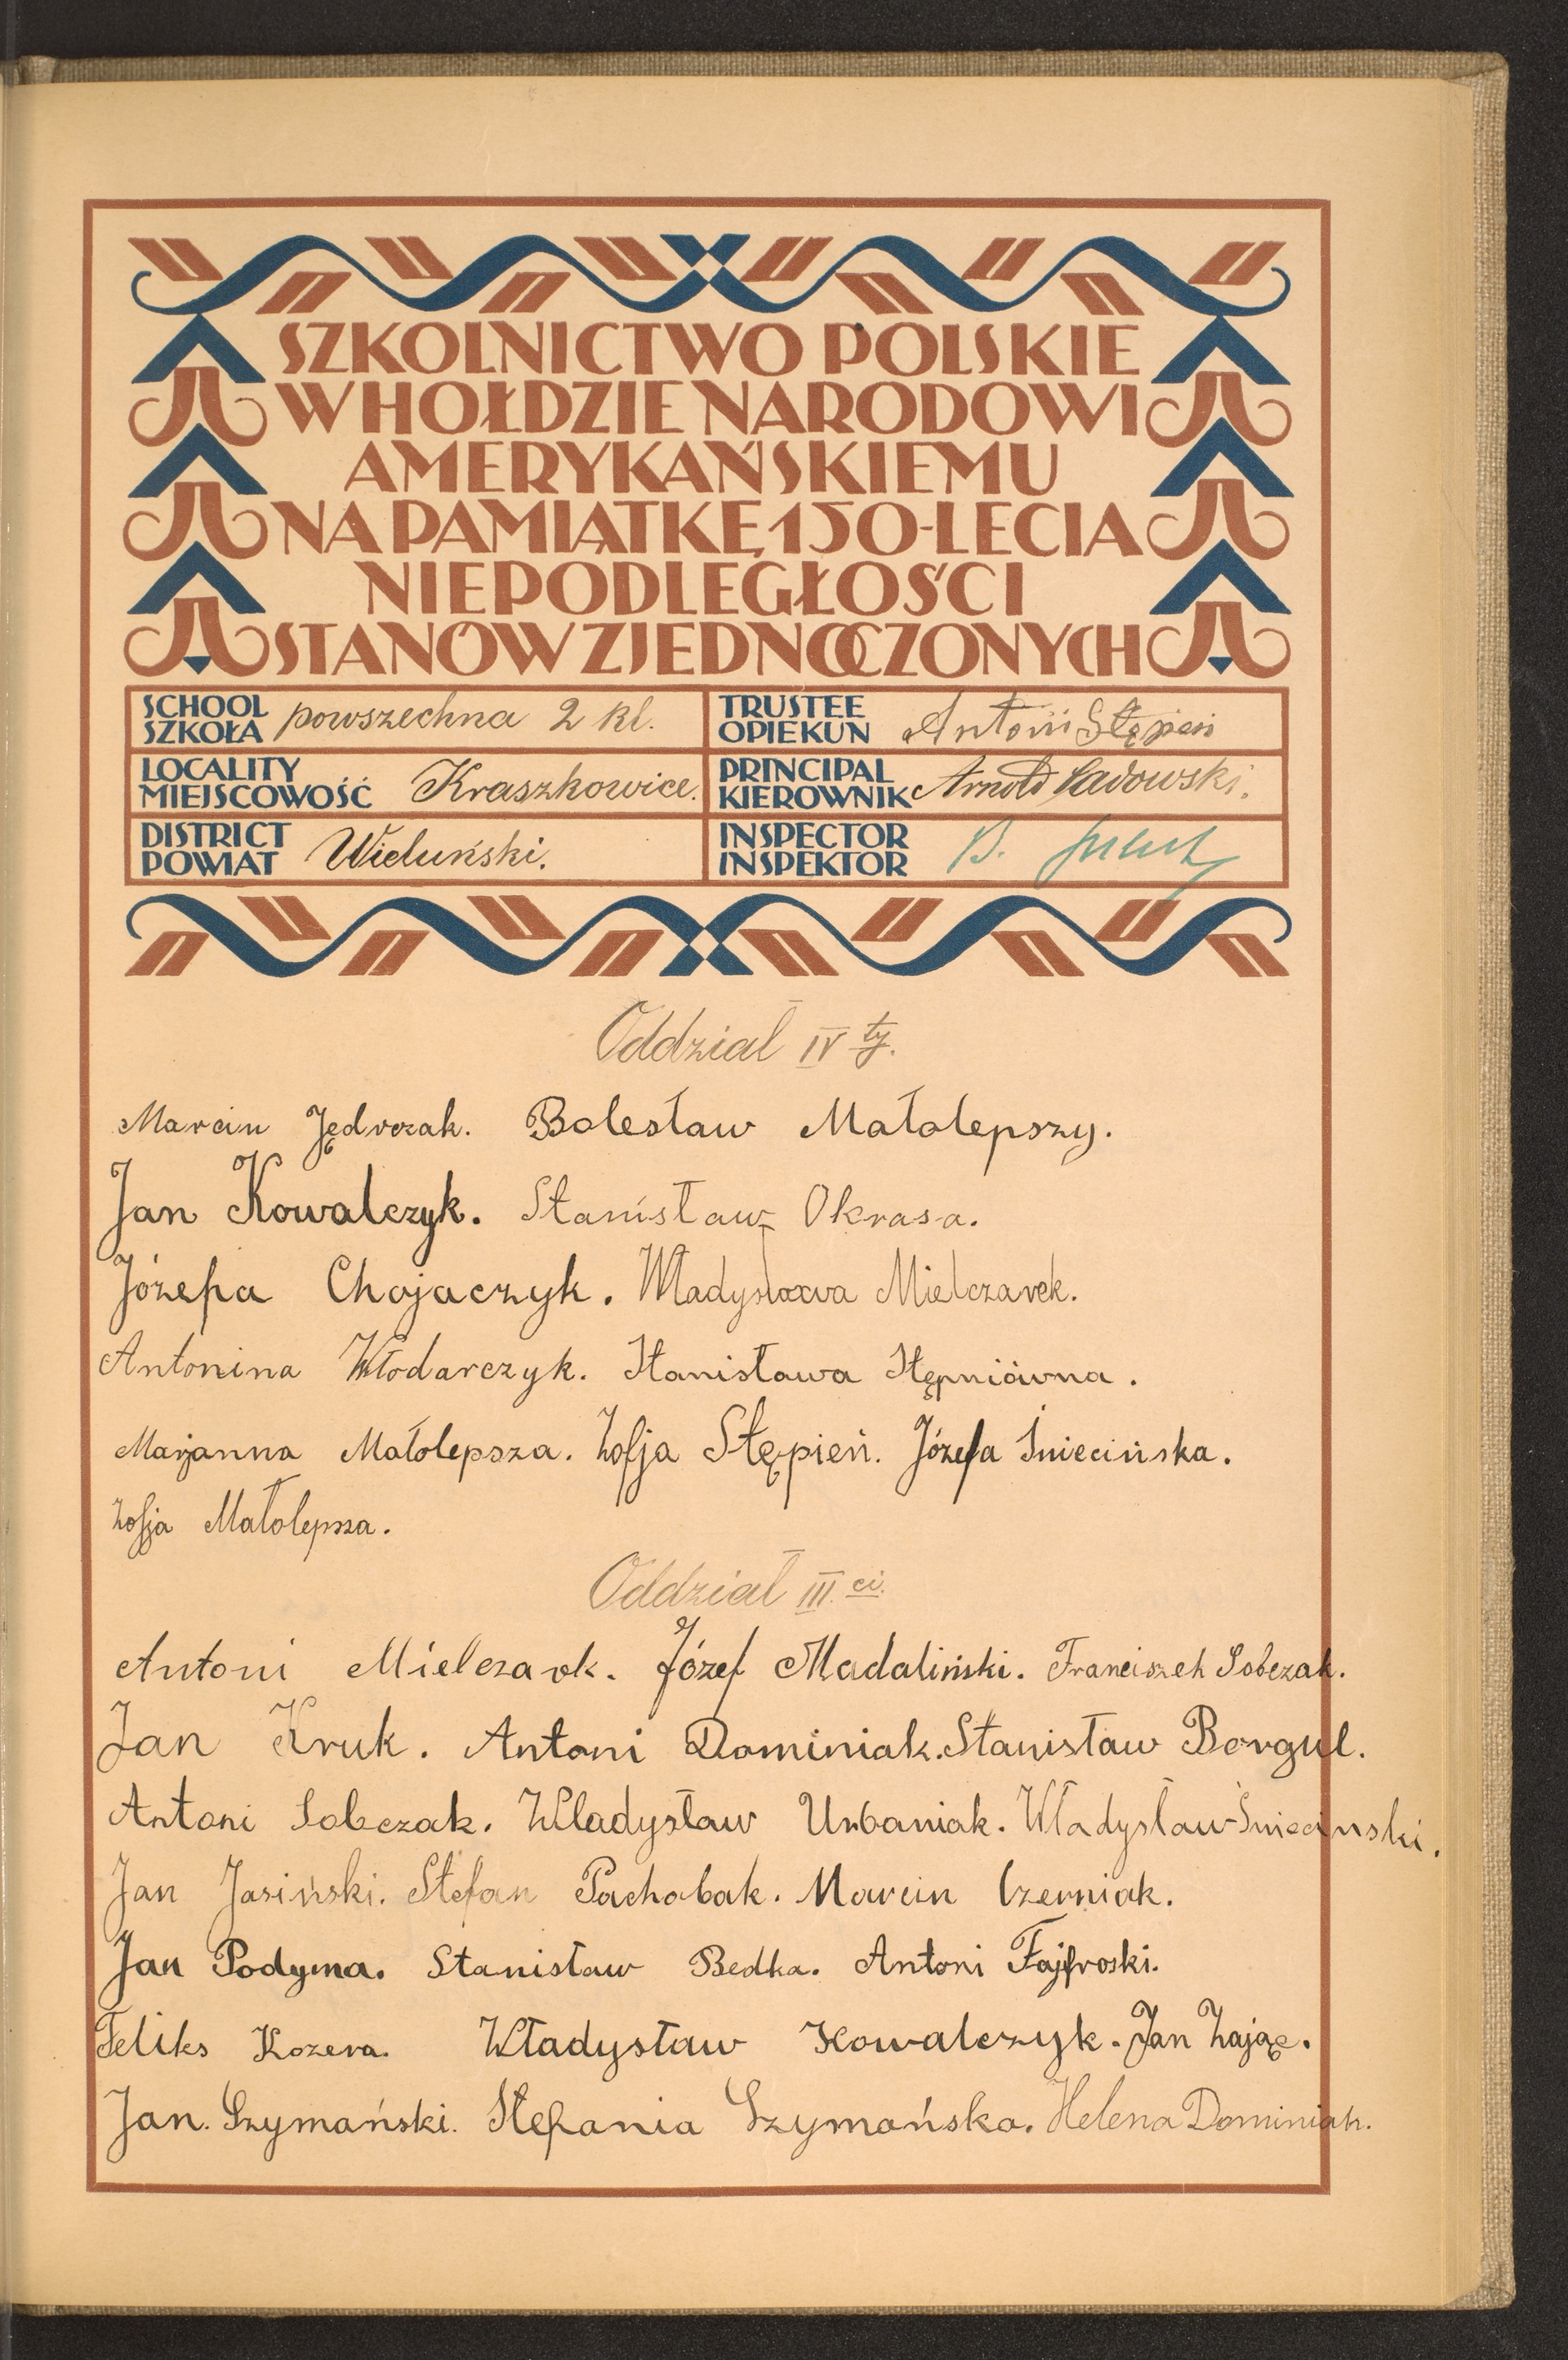 SZKOLNICTWO POLSKIE
W HOŁDZIE NARODOWI
AMERYKAŃSKIEMU
NA PAMIĄTKĘ 150-LECIA
NIEPODLEGŁOŚCI
STANÓW ZJEDNOCZONYCH
SCHOOL
SZKOŁA powszechna 2 kl.
TRUSTEE
OPIEKUN Antoni Stępień
LOCALITY
MIEJSCOWOŚĆ Kraszkowice.
PRINCIPAL
KIEROWNIK Arnold Ladowski.
DISTRICT
POWIAT Wieluński.
INSPECTOR
INSPEKTOR B.
Oddział IV ty.
Marcin Jędrczak. Bolesław Małolepszy.
Jan Kowalczyk. Stanisław Okrasa.
Józefa Chojaczyk. Władysława Mielczarek.
Antonina Włodarczyk. Stanisława Stępniówna.
Marjanna Małolepsza. Zofja Stępień. Józefa Śniecińska.
Zofja Małolepsza.
Oddział III. ci.
Antoni Mielczarek. Józef Madaliński. Franciszek Sobczak.
Jan Kruk. Antoni Dominiak. Stanisław Borgul.
Antoni Sobczak. Władysław Urbaniak. Władysław Śnieciński.
Jan Jasiński. Stefan Pachobak. Marcin Czerniak.
Jan Podyma. Stanisław Bedka. Antoni Fajfroski.
Feliks Kozera. Władysław Kowalczyk. Jan Zając.
Jan. Szymański. Stefania Szymańska. Helena Dominiak.